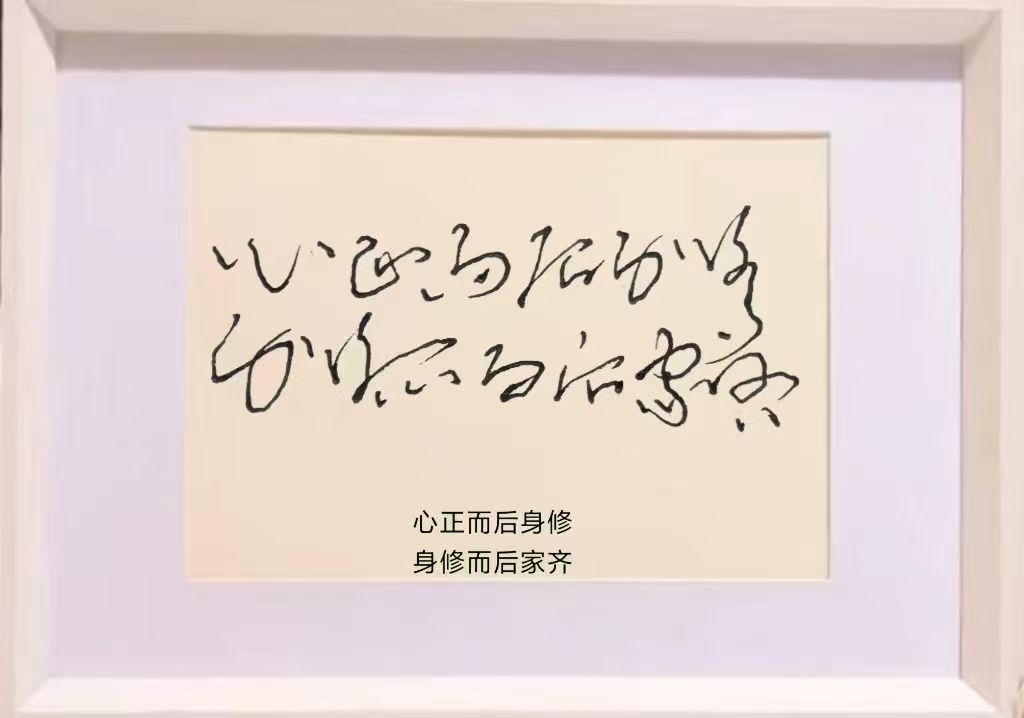 心正而后身修
身修而后家齐
心正而后身修
身修而后家齐